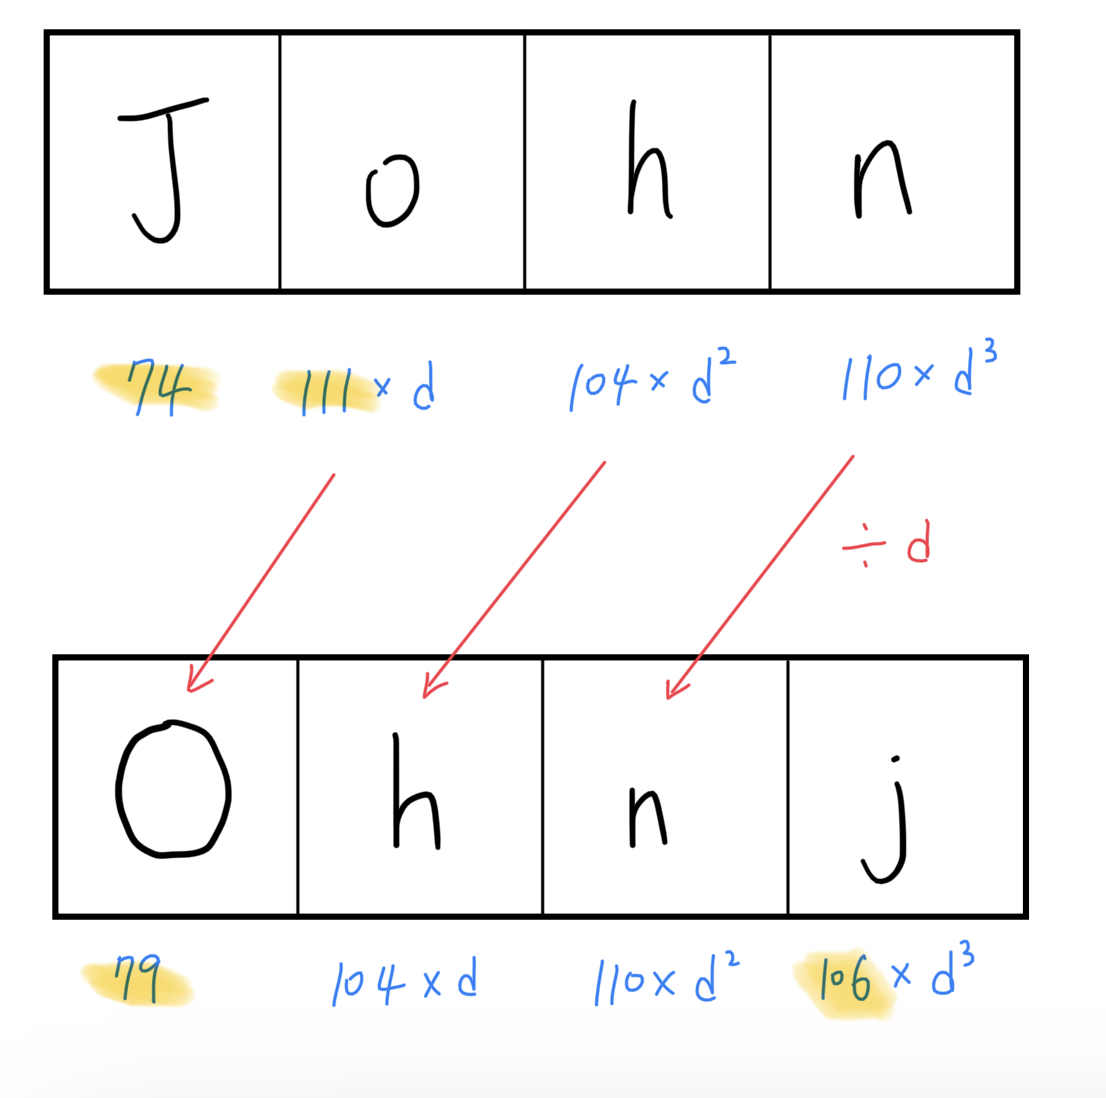 J o h n
74 111 × d 104 × d² 110 × d³
÷ d
O h n j
79 104 × d 110 × d² 106 × d³